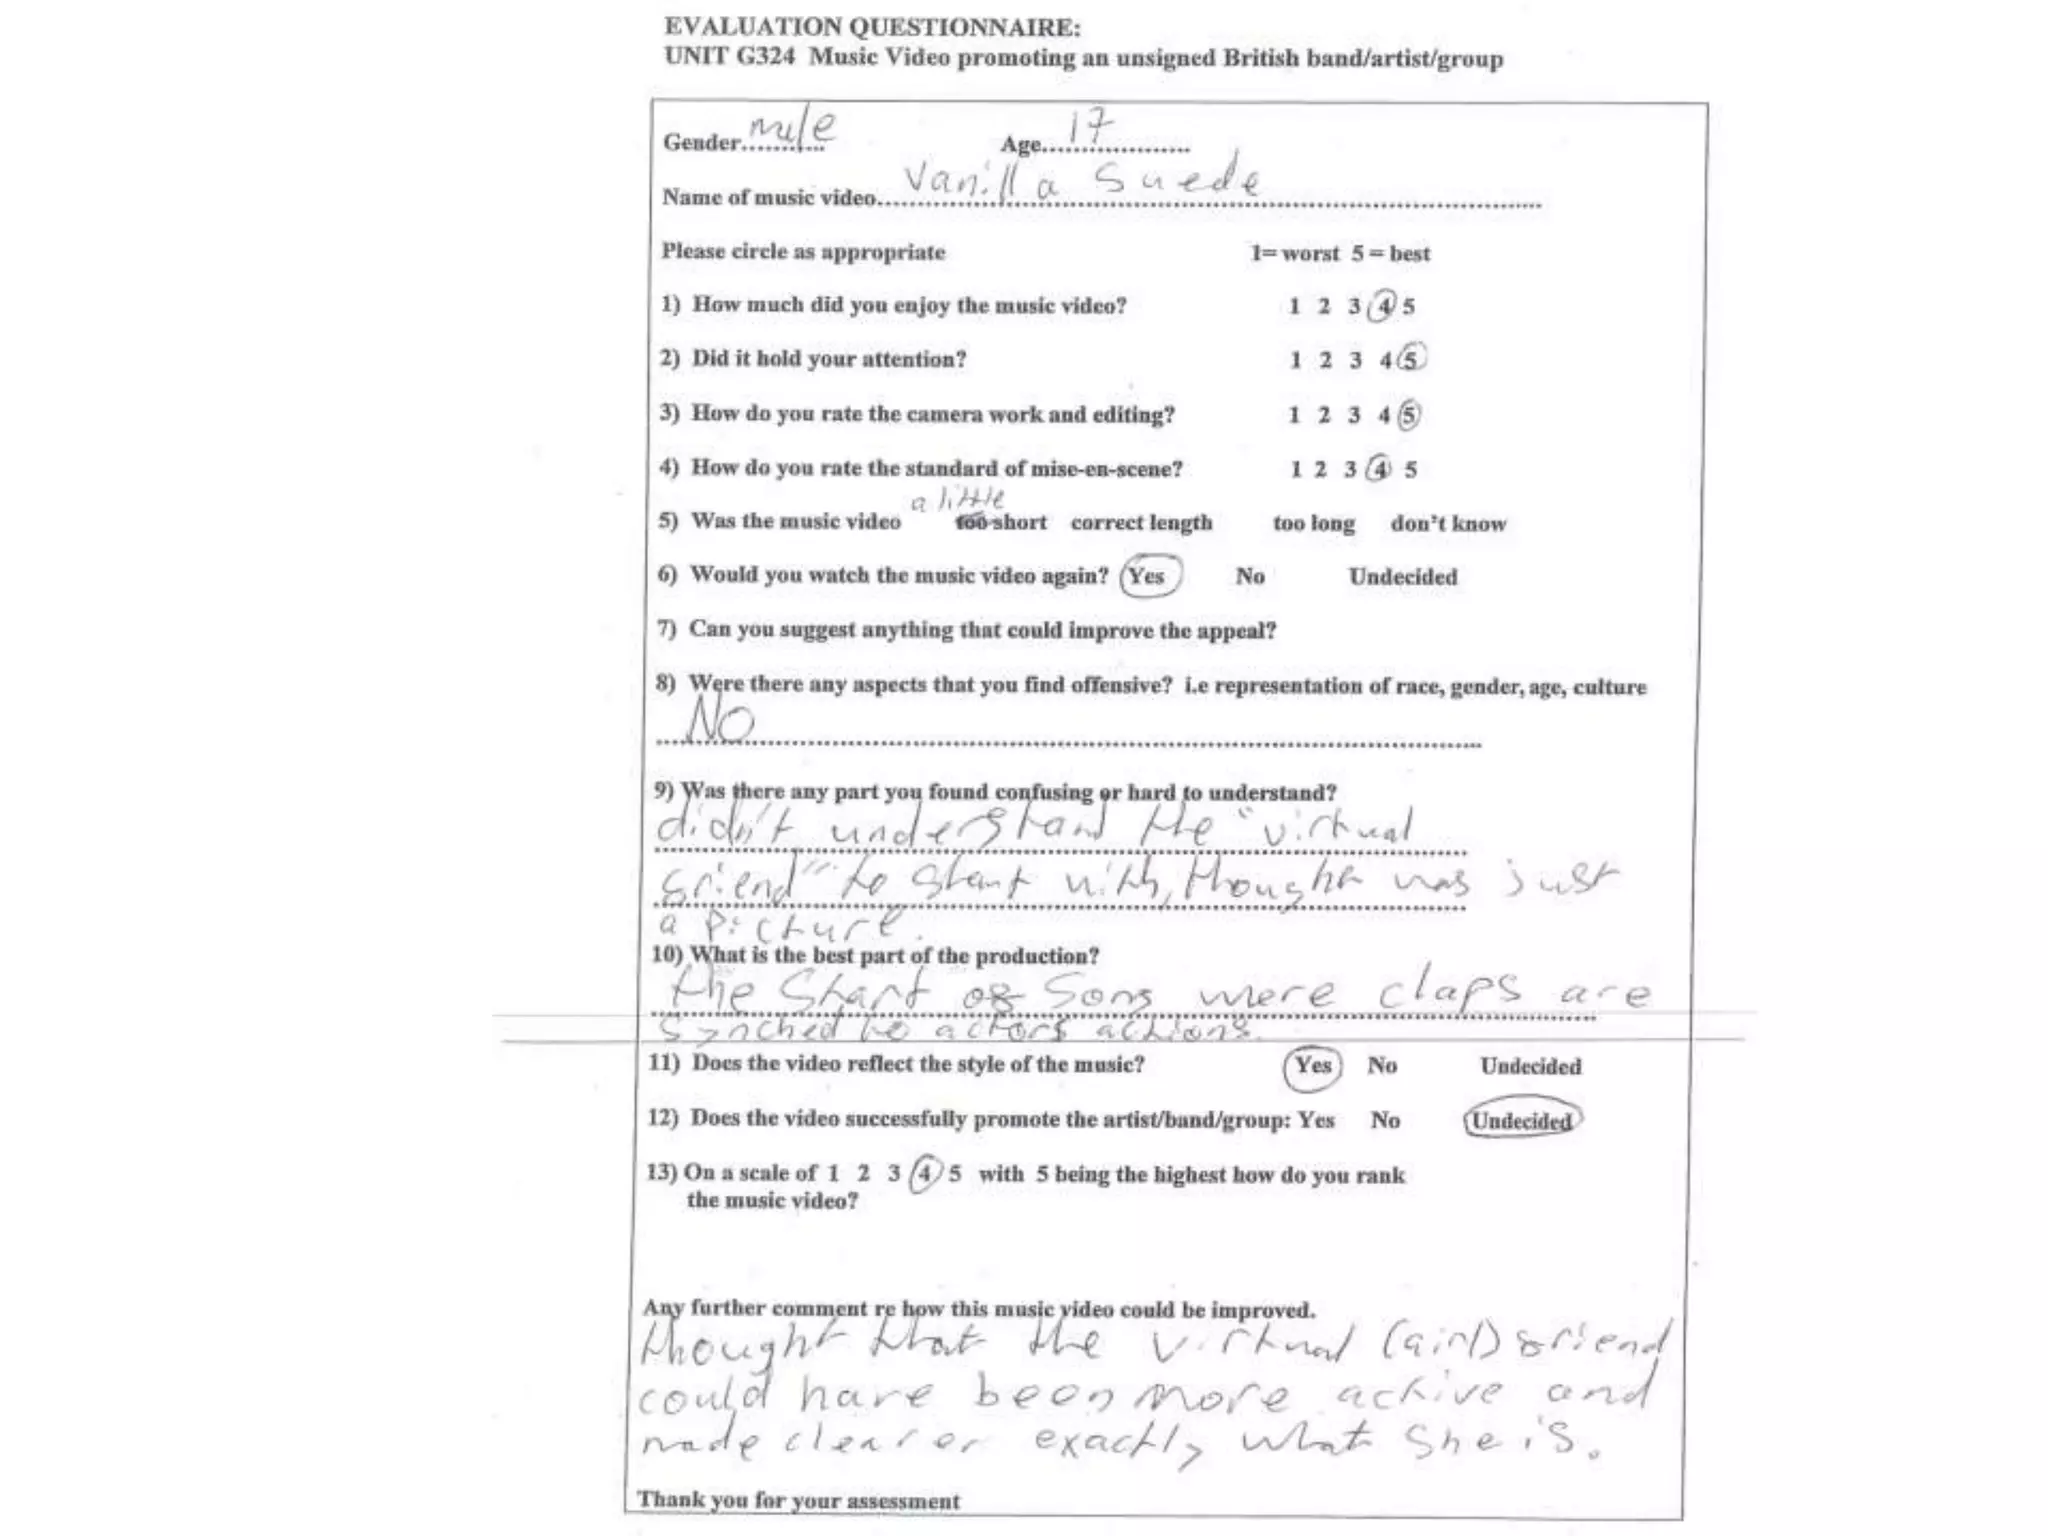 EVALUATION QUESTIONNAIRE:
UNIT G324 Music Video promoting an unsigned British band/artist/group
Gender........... male Age................... 17
Name of music video.................... Vanilla Suede
Please circle as appropriate 1= worst 5 = best
1) How much did you enjoy the music video? 1 2 3 4 5
2) Did it hold your attention? 1 2 3 4 5
3) How do you rate the camera work and editing? 1 2 3 4 5
4) How do you rate the standard of mise-en-scene? 1 2 3 4 5
a little
5) Was the music video too short correct length too long don't know
6) Would you watch the music video again? Yes No Undecided
7) Can you suggest anything that could improve the appeal?
8) Were there any aspects that you find offensive? i.e representation of race, gender, age, culture
NO
9) Was there any part you found confusing or hard to understand?
didn't understand the "virtual
friend" to start with, thought was just
a picture.
10) What is the best part of the production?
the start of song were claps are
synched to actors actions.
11) Does the video reflect the style of the music? Yes No Undecided
12) Does the video successfully promote the artist/band/group: Yes No Undecided
13) On a scale of 1 2 3 4 5 with 5 being the highest how do you rank
the music video?
Any further comment re how this music video could be improved.
thought that the virtual (girl) friend
could have been more active and
made clearer exactly what she is.
Thank you for your assessment